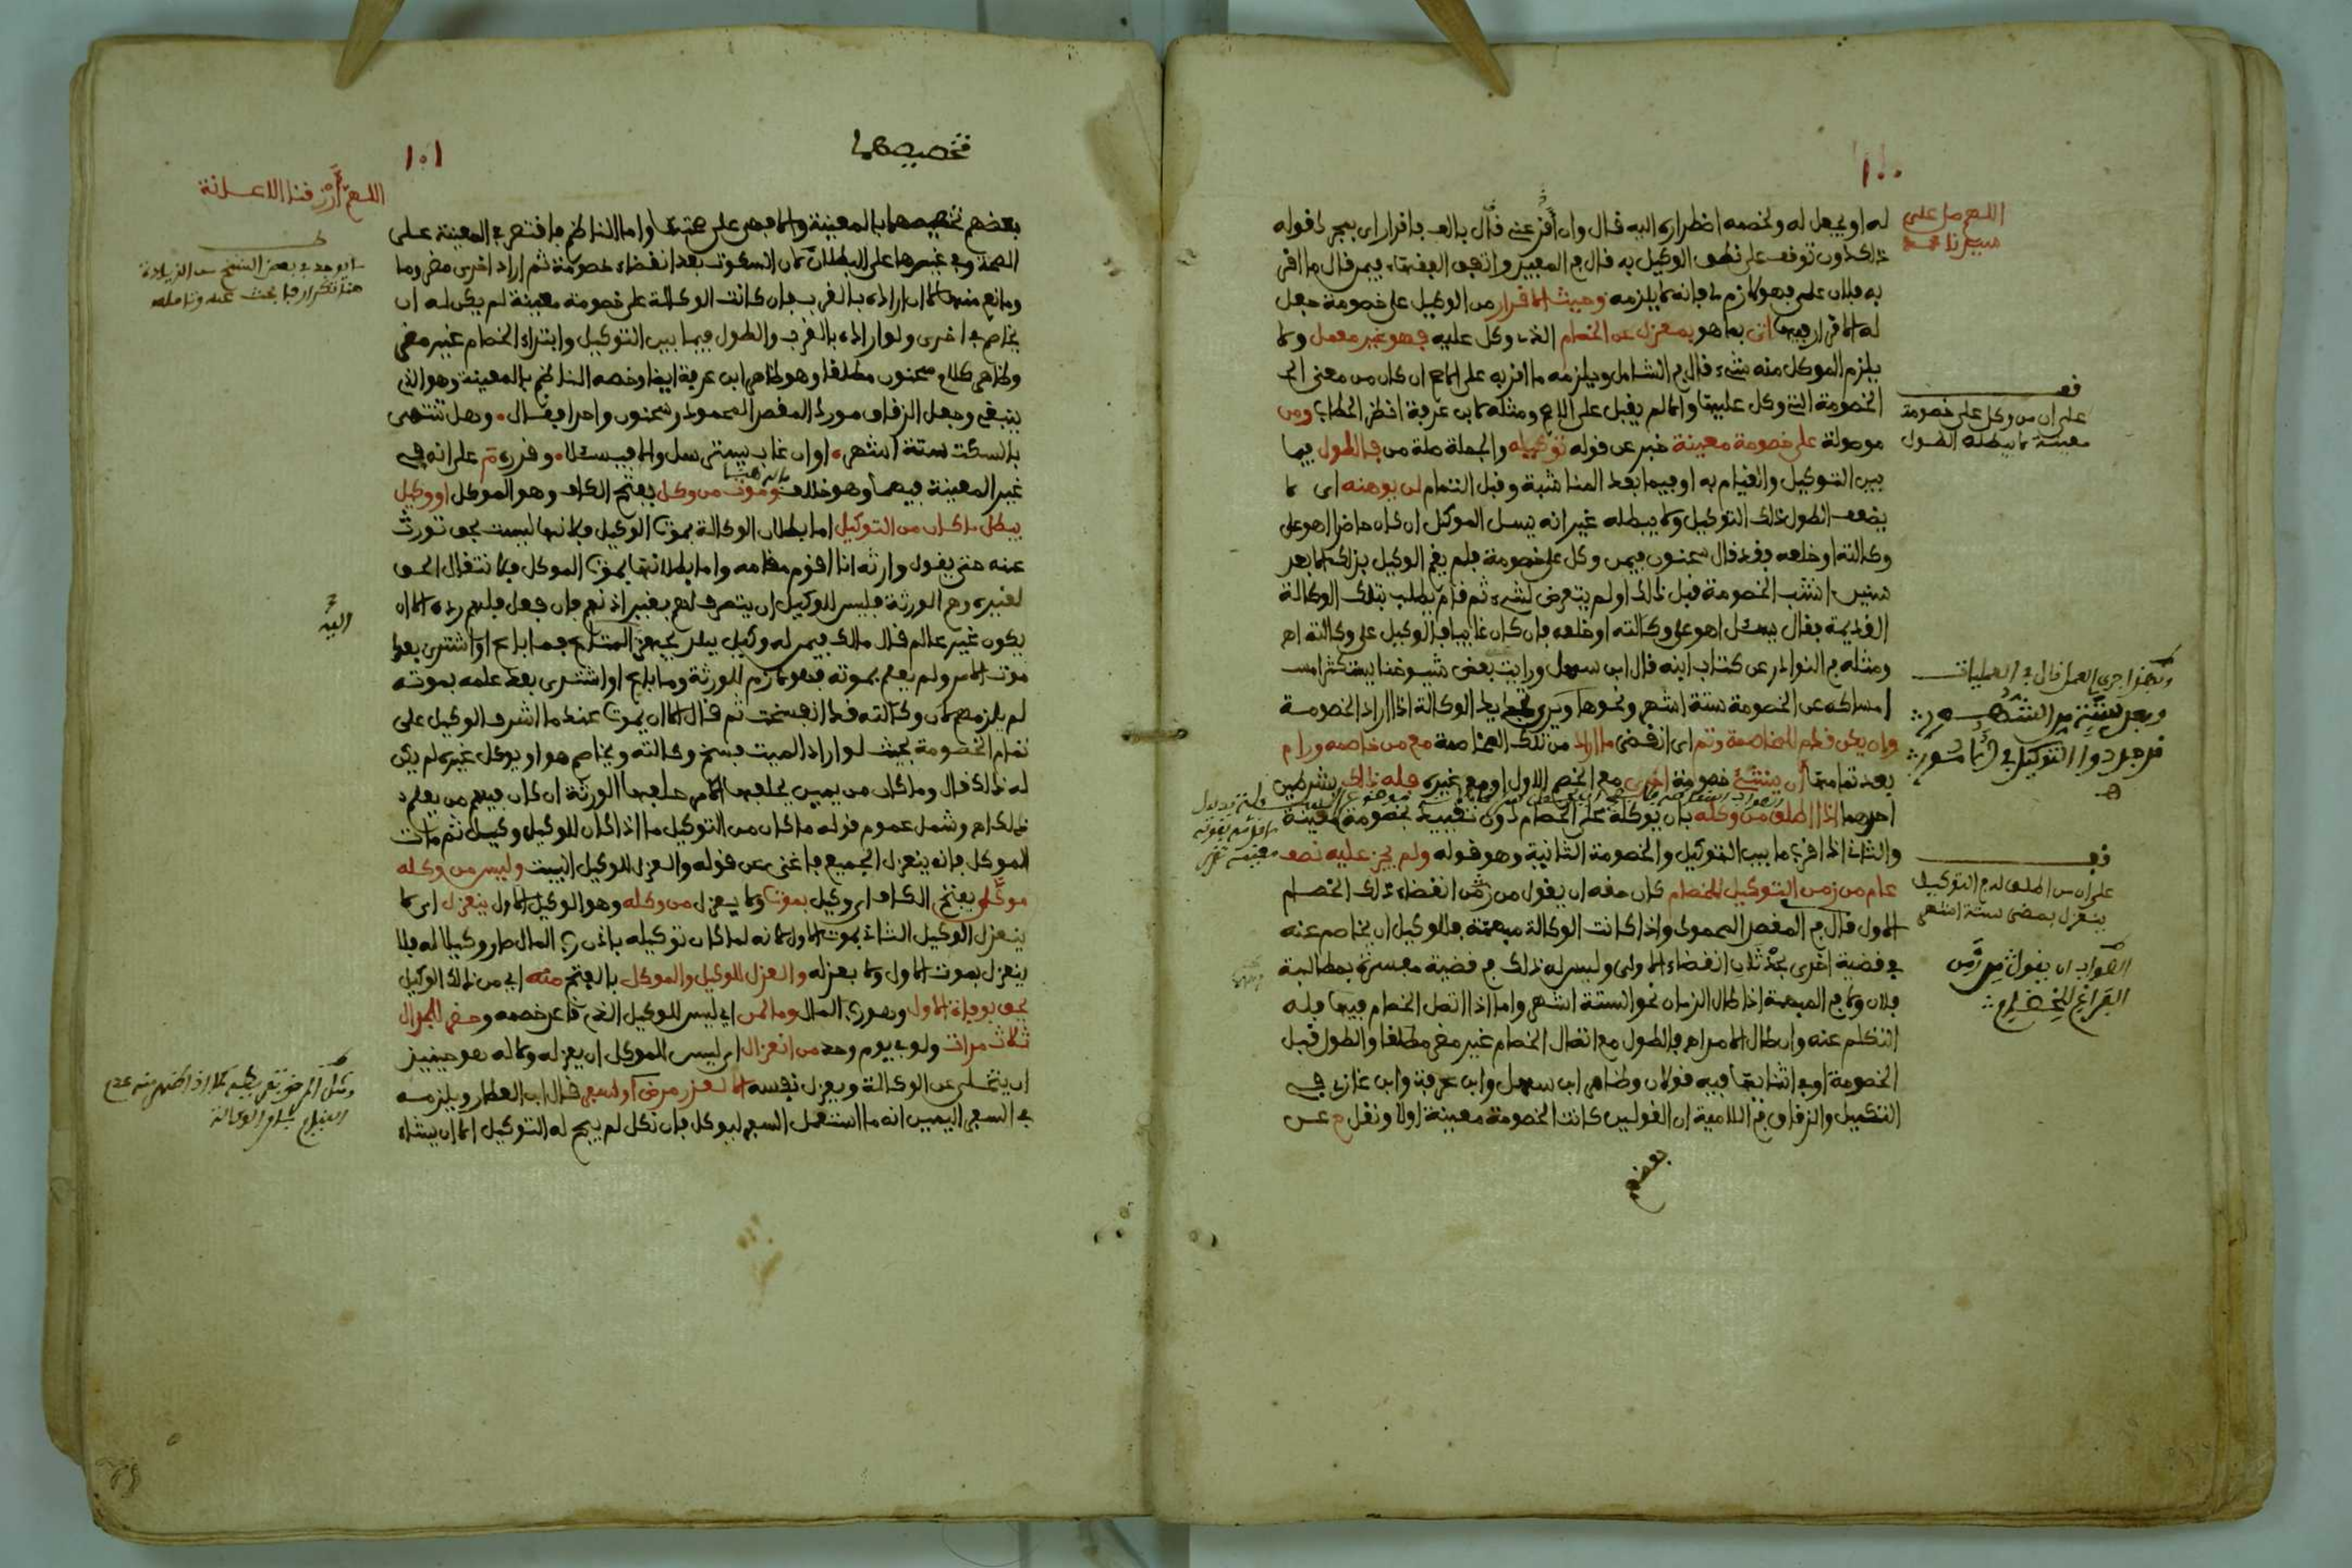 ١٠٠
اللهم صل على
سيدنا محمد
له او يجعل له ولخصمه اضطراره اليه قال وان قال اقر عني بالف فاقرار اي بمجرد قوله
ذلك دون توقف على نطق الوكيل به قال في المعين واتفق الفقهاء فيمن قال ما اقر
به فلان علي فهو لازم لي فانه لا يلزمه وحيث الاقرار من الوكيل على خصومة جعل
له الاقرار فيها اتى بما هو بمعزل عن الخصام الذي وكل عليه فهو غير معمل ولا
يلزم الموكل منه شيء قال في الشامل ويلزمه ما اقر به على الاصح ان كان من معنى
الخصومة التي وكل عليها والا لم يقبل على الاصح ومثله لابن عرفة انظر الحطاب ومن
موصولة على خصومة معينة خبر عن قوله توكيله والجملة صلة من فالطول فيما
بين التوكيل والقيام به او فيما بعد المناشبة وقبل التمام لن يوهنه اي لا
يضعف الطول ذلك التوكيل ولا يبطله غير انه يسل الموكل ان كان حاضرا اهو على
وكالته او خلعه فقد قال سحنون فيمن وكل على خصومة فلم يقم الوكيل بذلك الا بعد
سنين انشب الخصومة قبل ذلك او لم يتعرض لشيء ثم قام يطلب بتلك الوكالة
القديمة فقال يسئل اهو على وكالته او خلعه فان كان غائبا فالوكيل على وكالته اهـ
ومثله في النوادر عن كتاب ابنه قال ابن سهل ورايت بعض شيوخنا يستكثر امسـ
امساكه عن الخصومة ستة اشهر ونحوها ويرى تجديد الوكالة اذا اراد الخصومة
وان يكن قدم للمخاصمة وتم اي انقضى ما اراد من تلك المخاصمة مع من خاصمه ورام
بعد تمامها ان ينشئ خصومة اخرى مع الخصم الاول او مع غيره فله ذلك بشرطين
احدهما اذا اطلق من وكله بان يوكله على الخصام دون تقييد بخصومة معينة
والثاني اذا قرب ما بين التوكيل والخصومة الثانية وهو قوله ولم يجز عليه نصف
عام من زمن التوكيل للخصام كان حقه ان يقول من زمن انقضاء ذلك الخصام
الاول قال في المقصد المحمود واذا كانت الوكالة مبهمة فللوكيل ان يخاصم عنه
في قضية اخرى بحدثان انقضاء الاولى وليس له ذلك في قضية مفسرة بمطالبة
فلان ولا في المبهمة اذا طال الزمان نحو الستة اشهر واما اذا اتصل الخصام فيما قبله
التكلم عنه وان طال الامر اهـ فالطول مع اتصال الخصام غير مضر مطلقا والطول قبل
الخصومة او في اثنائها فيه قولان وظاهر ابن سهل وابن عرفة وابن غازي في
التكميل والزقاق في اللامية ان القولين كانت الخصومة معينة اولا ونقل ح عن
بعضهم
قف
على ان من وكل على خصومة
معينة لا يبطله الطول
وبهذا جرى العمل قال في العمليات
قف
على ان من اطلق له في التوكيل
ينعزل بمضي ستة اشهر
الصواب ان يقول من زمن
الفراغ للخصام
١٠١
تخصيصهما
اللهم ارزقنا الاعانة
بعضهم تخصيصهما بالمعينة والا فهي على صحتها واما الناظم فاقتصر في المعينة على
الصحة وفي غيرها على البطلان كان السكوت بعد انقضاء خصومة ثم اراد اخرى مضى وما
ومانع منها الا ان اراده بالقرب فان كانت الوكالة على خصومة معينة لم يكن له ان
يخاصم في اخرى ولو اراده بالقرب والطول فيما بين التوكيل وابتداء الخصام غير مضر
وظاهر كلام سحنون مطلقا وهو ظاهر ابن عرفة ايضا وخصه الناظم بالمعينة وهو الذي
ينبغي وجعل الزقاق مورد المقصد المحمود وسحنون واحدا فقال وهل تنتهى
بالسكت ستة اشهر او ان غاب يسترسل والا فيسئلا وقرره م على انه في
غير المعينة فيهما وهو خلاف وموت من وكل بفتح الكاف وهو الموكل او وكيل
يبطل ما كان من التوكيل اما بطلان الوكالة بموت الوكيل فلانها ليست بحق تورث
عنه حتى يقول وارثه انا اقوم مقامه واما بطلانها بموت الموكل فلانتقال الحق
لغيره وهم الورثة فليس للوكيل ان يتصرف لهم بغير اذنهم فان فعل فلهم رده الا ان
يكون غير عالم قال مالك فيمن له وكيل ببلد يجهز المتاع فما باع او اشترى بعد
موت الامر ولم يعلم بموته فهو لازم للورثة وما باع او اشترى بعد علمه بموته
لم يلزمهم لان وكالته قد انفسخت ثم قال الا ان يموت عندما اشرف الوكيل على
تمام الخصومة بحيث لو اراد الميت فسخ وكالته ويخاصم هو او يوكل غيره لم يكن
له ذلك قال وما كان من يمين يحلفها الامر حلفها الورثة ان كان فيهم من يعلم
ذلك اهـ وشمل عموم قوله ما كان من التوكيل ما اذا كان للوكيل وكيل ثم مات
الموكل فانه ينعزل الجميع فاغنى عن قوله والعزل للوكيل البيت وليس من وكله
موكل بفتح الكاف اي وكيل بموت ولا يعزل من وكله وهو الوكيل الاول ينعزل اي لا
ينعزل الوكيل الثاني بموت الاول لانه لما كان توكيله باذن رب المال صار وكيلا له فلا
ينعزل بموت الاول ولا بعزله والعزل للوكيل والموكل بالفتح منه اي من ذلك الوكيل
يحق بوفاة الاول وهو رب المال وما لمن اي ليس للوكيل الذي قاعد خصمه وحضر للجدال
ثلاث مرات ولو في يوم وحد من انعزال اي ليس للموكل ان يعزله ولا له هو حينيذ
ان يتخلى عن الوكالة ويعزل نفسه الا لعذر مرض او لسفر قال ابن العطار ويلزمه
في السفر اليمين انه ما استعمل السفر ليوكل فان نكل لم يبح له التوكيل الا ان يشاء
يوجد في بعض النسخ من الزيادة
هنا تكرار فابحث عنه وتامله